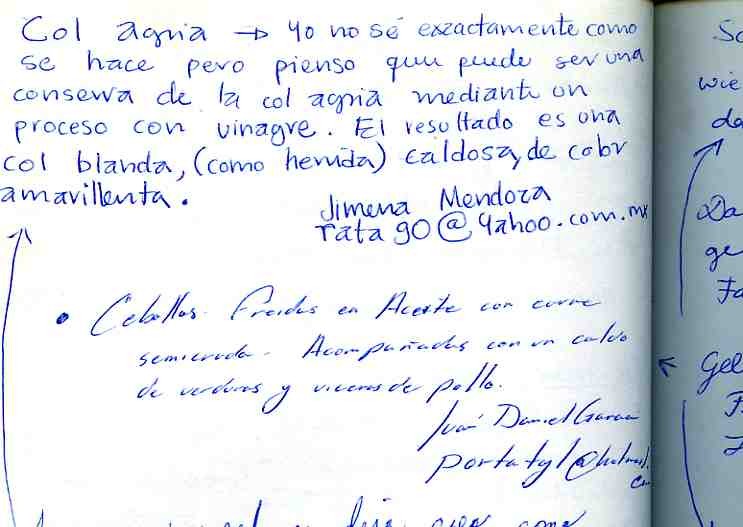 Col agria → yo no sé exzactamente como
se hace pero pienso que puede ser una
conserva de la col agria mediante un
proceso con vinagre. El resultado es una
col blanda, (como hervida) caldosa, de color
amarillenta.
Jimena Mendoza
rata90@yahoo.com.mx
• Cebollas. Freidas en Aceite con carne
semicruda. Acompañadas con un caldo
de verduras y viceras de pollo.
Iván Daniel Garcia
portatyl@hotmail.
com
deja como
wie
da
Da
ge
Fa
← Gel